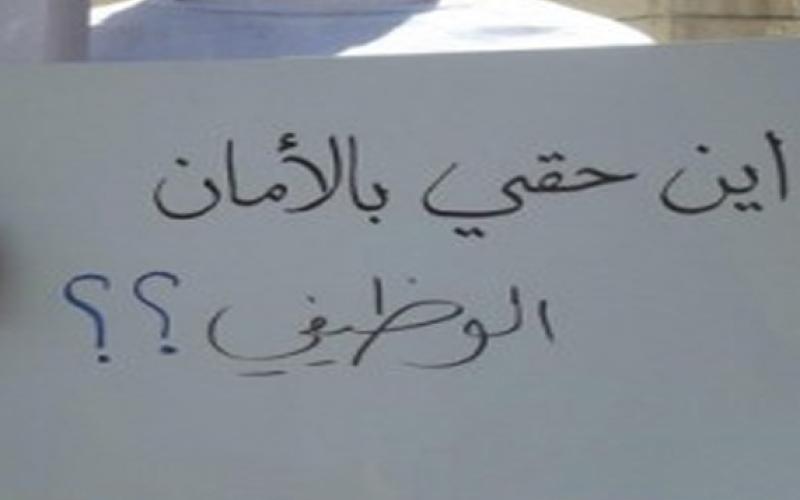 اين حقي بالأمان
الوظيفي؟؟